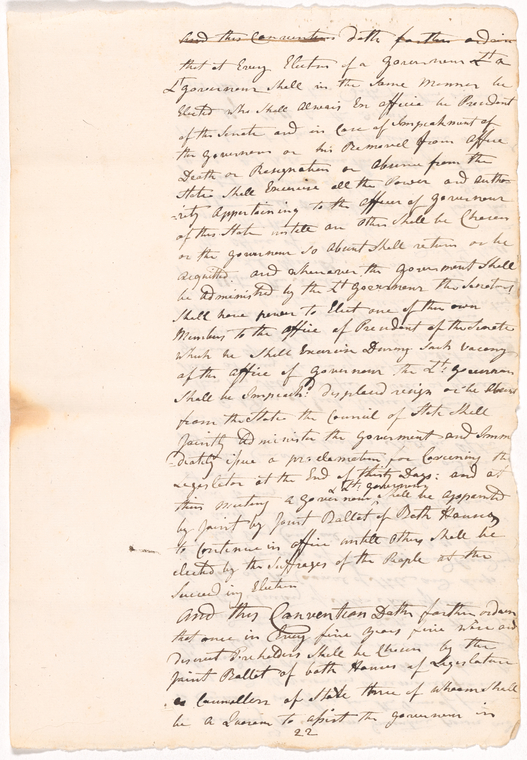 And this Convention doth further ordain
that at Every Election of a Governour Lt a
Lt governour Shall in the Same Manner be
Elected who Shall Always En officio be President
of the Senate and in Case of Impeachment of
the Governour or his Removal from office
Death or Resignation or Absence from the
State Shall Exercise all the Power and autho-
rity Appertaining to the Office of Governour
of this State untill an other Shall be Chosen
or the governour so Absent Shall return or be
Acquitted and whenever the Goverment Shall
be administred by the Lt governour the Senators
Shall have power to Elect one of their own
Members to the office of President of the Senate
which he Shall Exercise During Such Vacancy
of the office of Governour the Lt governour
Shall be Impeachd displacd resign or be Absent
from the State the Council of State Shall
Jointly Administer the Goverment and Imm
diately issue a proclamation for Convening the
Legislator at the End of thirty Days: and at
their Meeting a Governour & Lt governour shall be appointed
by Joint by Joint Ballot of Both Houses
to Continue in office untill others Shall be
elected by the Suffrages of the People at the
Succeeding Election
And this Convention Doth further ordain
that once in Every five years five wise and
discreet Freeholders Shall be Chosen by the
Joint Ballot of both Houses of Legislature
as Councellors of State three of whom shall
be a Quoram to assist the governour in
22